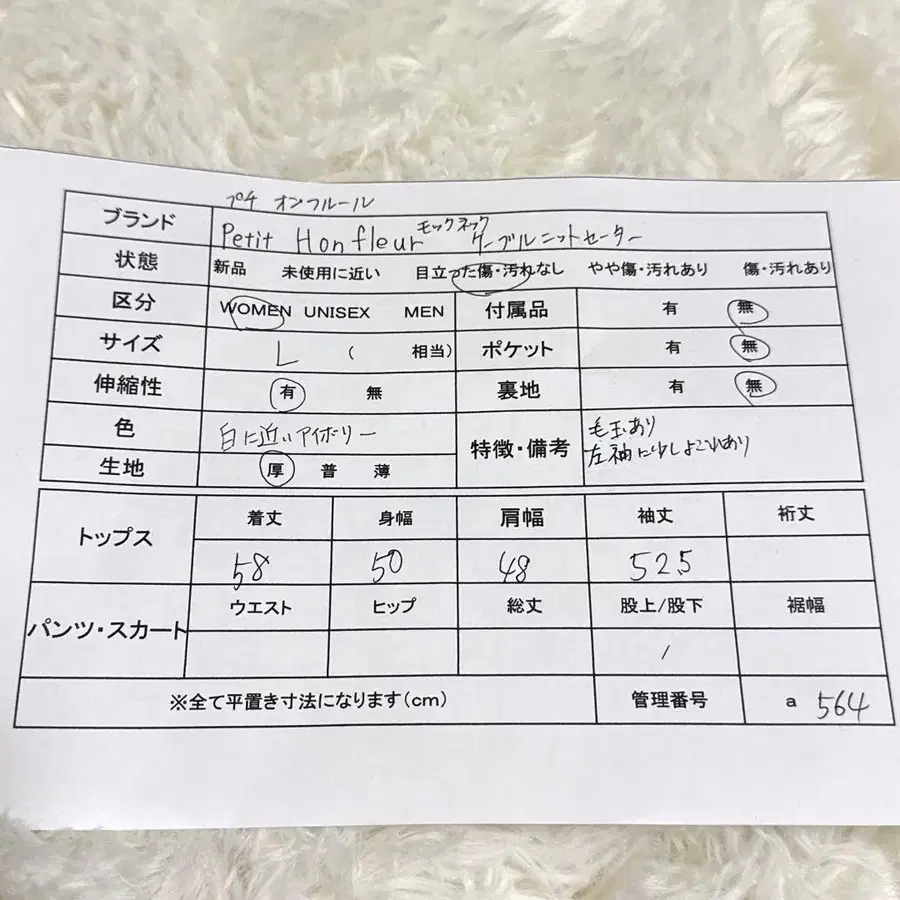 プチ オンフルール
ブランド Petit Honfleur モックネック ケーブルニットセーター
状態 新品 未使用に近い 目立った傷・汚れなし やや傷・汚れあり 傷・汚れあり
区分 WOMEN UNISEX MEN 付属品 有 無
サイズ L ( 相当) ポケット 有 無
伸縮性 有 無 裏地 有 無
色 白に近いアイボリー 特徴・備考 毛玉あり
左袖に少しよごれあり
生地 厚 普 薄
トップス 着丈 身幅 肩幅 袖丈 裄丈
58 50 48 52.5
パンツ・スカート ウエスト ヒップ 総丈 股上/股下 裾幅
/
※全て平置き寸法になります(cm) 管理番号 a 564